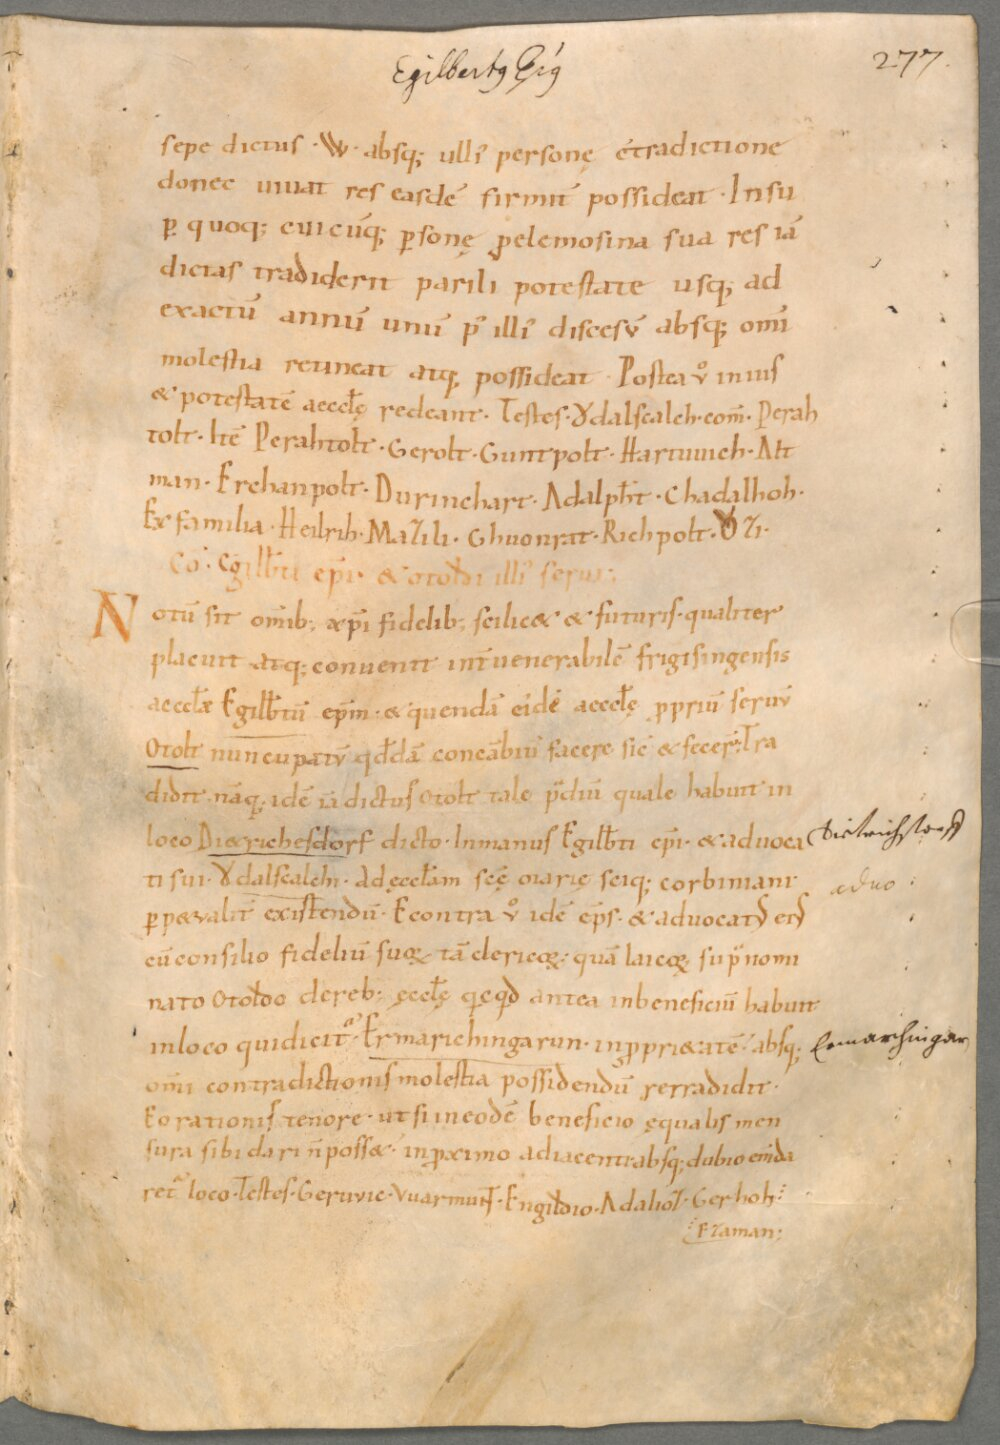 Egilbertꝰ Epiꝰ
277.
sepe dictus · W · absq; ulli᾽ personę c̄tradictione
donec uiuat res easdē firmit̄ possideat · Insu
ꝑ quoq; cuicūq; ꝑsonę ꝓ elemosina sua res iā
dictas tradiderit parili potestate usq; ad
exactū annū unū p᾽ illi᾽ discesū absq; om̄i
molestia retineat atq; possideat · Postea ů in ius
& potestatē aecclę redeant · Testes · Ŏdalscalch · com̄ · Perah
tolt · Itē Perahtolt · Gerolt · Guntpolt · Hartuuich · Alt
man · Erchanpolt · Durinchart · Adalpħt · Chadalhoh ·
Ex familia · Heilrih · Mazili · Chuonrat · Richpolt · Ŏzi ·
Co᾽ · Egilƀti ep̄i · & otoldi illi᾽ serui ·
Notū sit om̄ib; xp̄i fidelib; scilic& & futuris · qualiter
placuit atq; conuenit int̄ uenerabilē frigisingensis
aecclæ Egilƀtū ep̄m · & quendā eidē aecclę ꝓpriū seruū
Otolt nuncupatū qđdā concābiū facere sic̄ & fecer̄ · Tra
didit nāq; idē iā dictus otolt tale p̄diū quale habuit in
loco Di&richesdorf dicto · In manus Egilƀti ep̄i · & aduoca
Dietrichstorff
ti sui · Ŏdalscalchi · Ad ęcclam scę̄ MARIĘ sciq; corbiniani
aduo :
ꝑp&ualit̄ existendū · Econtra ů idē ep̄s · & aduocatꝰ eiꝰ
cū consilio fideliū suoꝝ tā clericoꝝ · quā laicoꝝ sup̄nomi
nato otoldo de reb; ęcclę qicqđ antea in beneficiū habuit
in loco qui dicit᷑ · Ermarichingarun · in ꝓpri&atē · absq;
Ermarchingar
om̄i contradictionis molestia possidendū retradidit ·
Eo rationis tenore · ut si in eodē beneficio ęqualis men
sura sibi dari n̄ poss& · in ꝓximo adiacent᷑ absq; dubio em̄da
ret᷑ loco · Testes · Geruuic · Vuarmunt · Engildio · Adalholt · Gerhoh ·
Framan ;